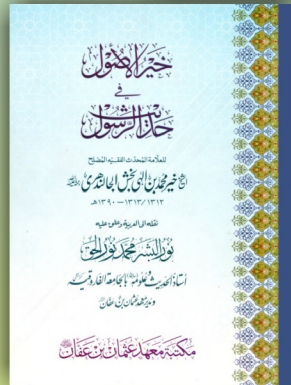 خير الأصول
في
حديث الرسول
للعلامة المحدث الفقيه المصلح
الشيخ خير محمد بن إلهي بخش الجالندهري
١٣١٢/١٣١٣ – ١٣٩٠هـ
نقله الى العربية وعلق عليه
نور البشر محمد نور الحق
أستاذ الحديث وعلومه بالجامعة الفاروقية
ومدير معهد عثمان بن عفان
مكتبة معهد عثمان بن عفان